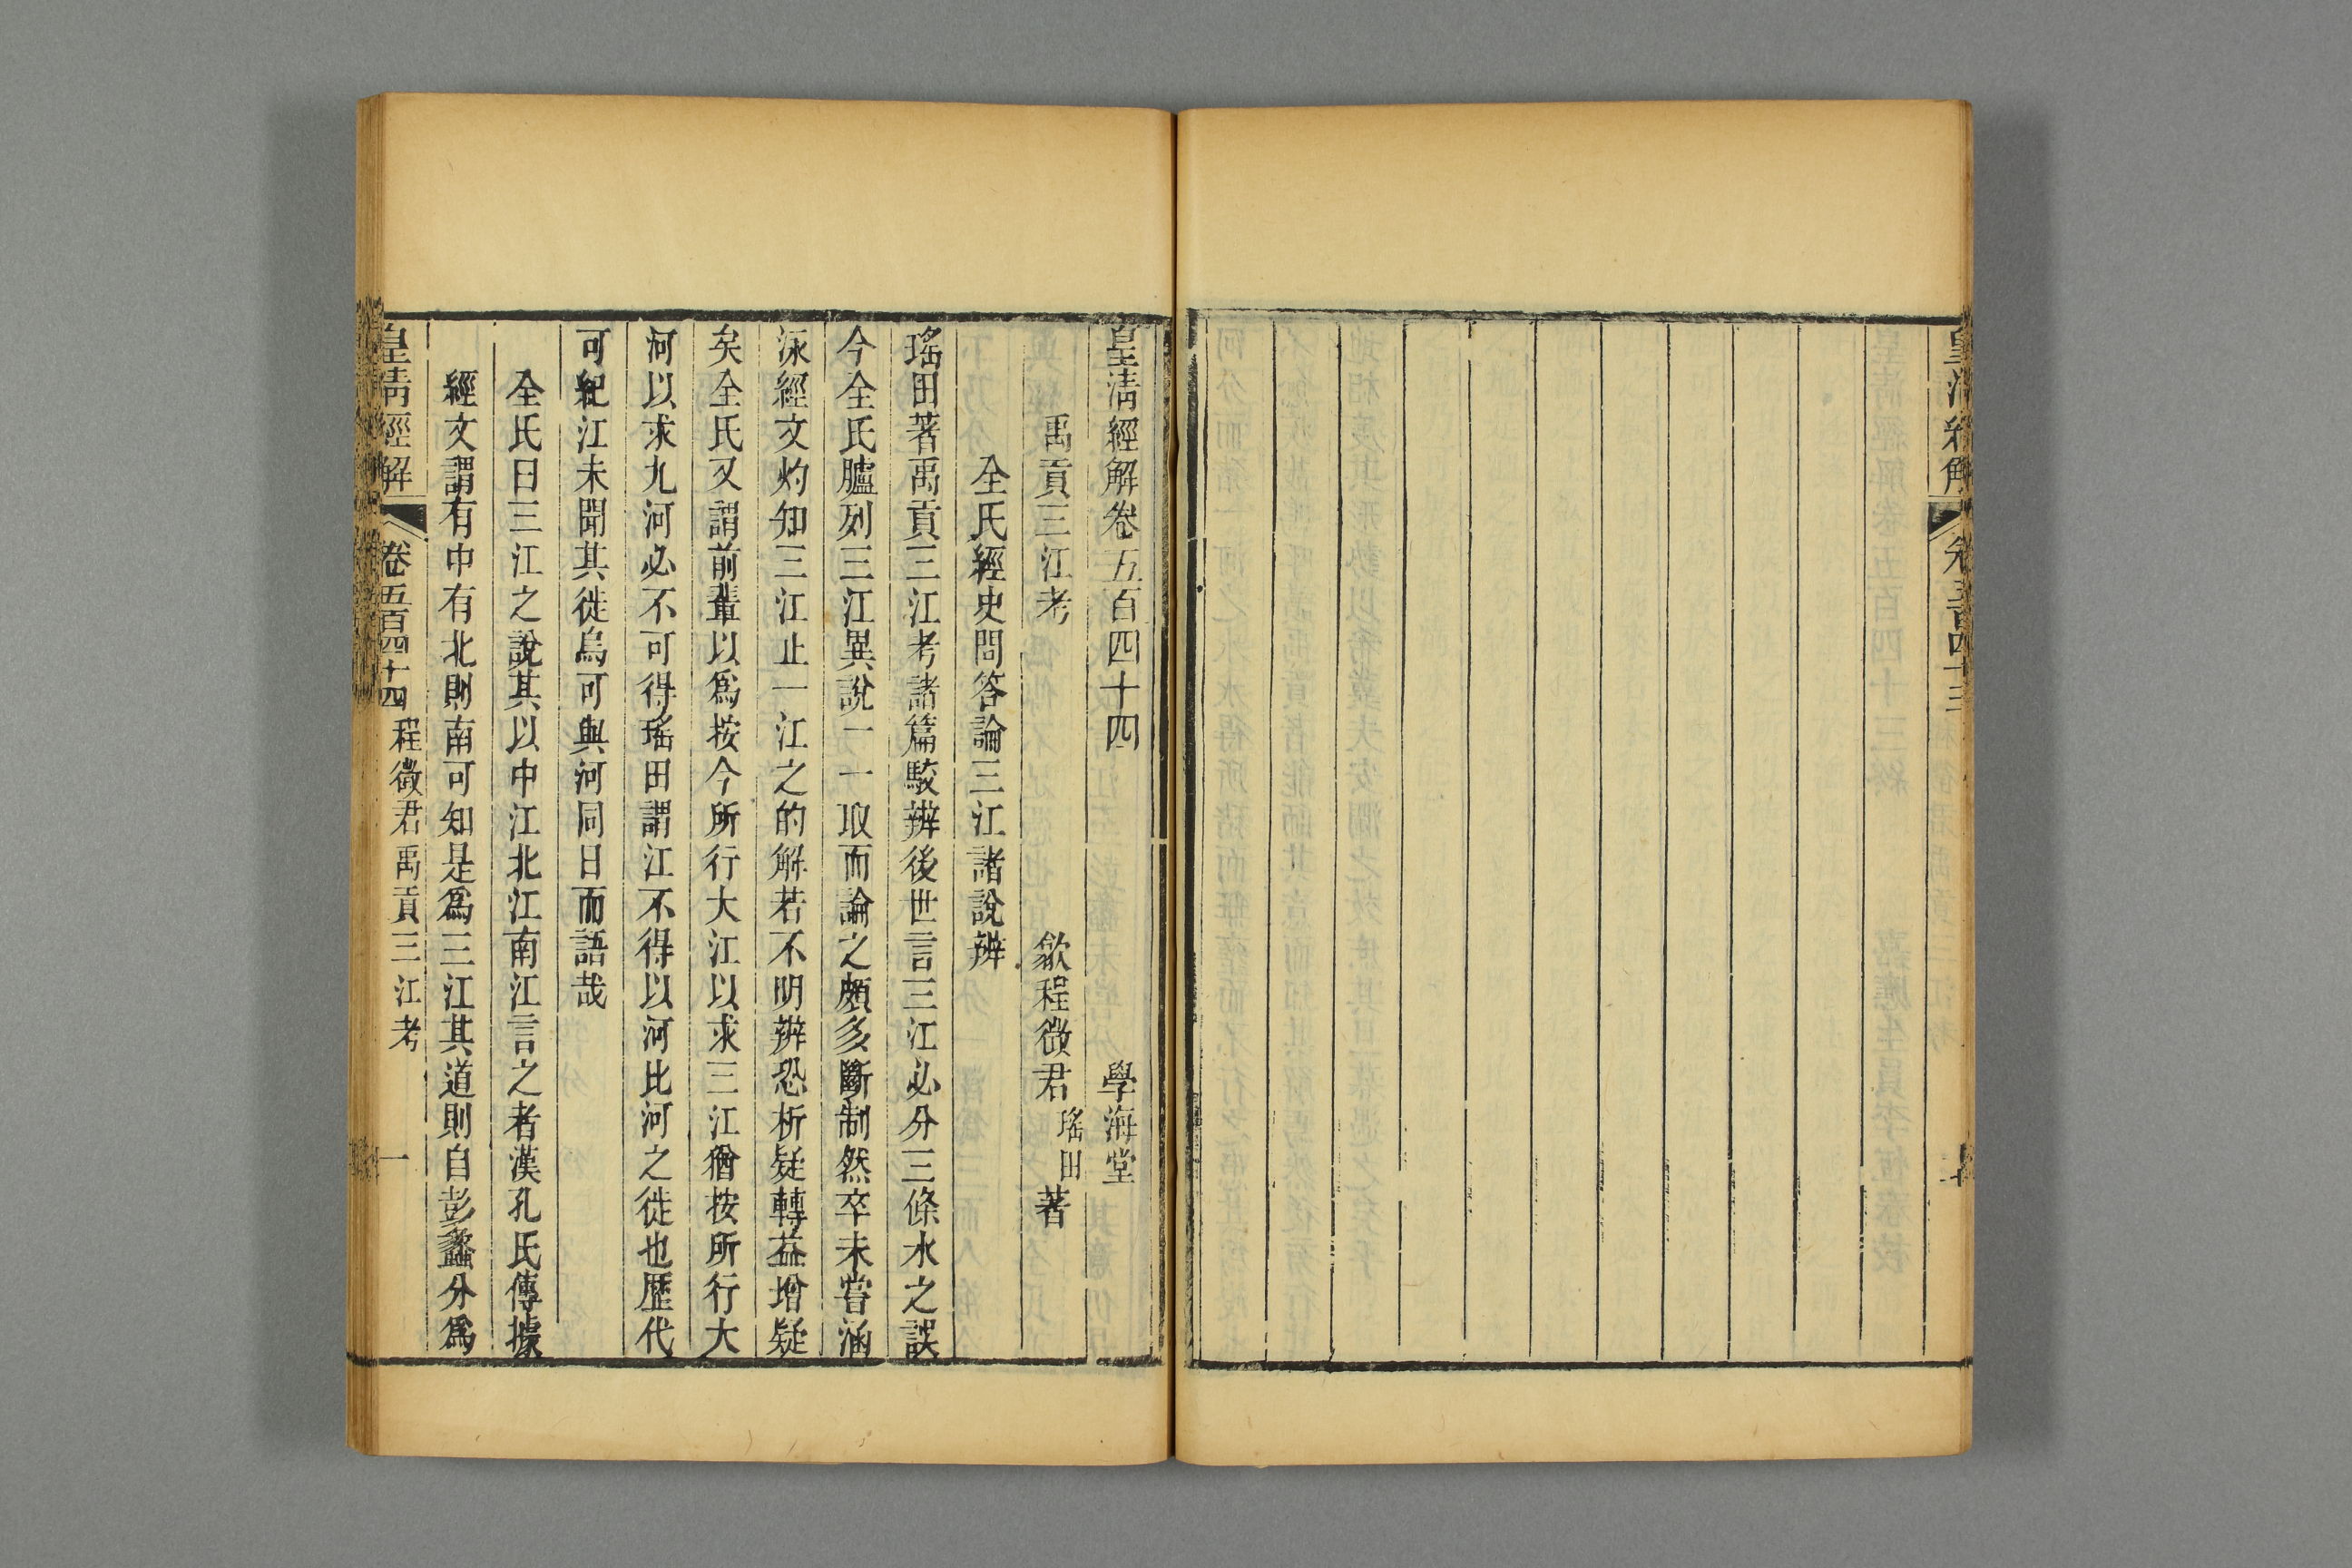 皇清經解卷五百四十四 學海堂
禹貢三江考 歙程徵君瑤田著
全氏經史問答論三江諸說辨
瑤田著禹貢三江考諸篇駮辨後世言三江必分三條水之誤
今全氏臚列三江異說一一取而論之頗多斷制然卒未嘗涵
泳經文灼知三江止一江之的解若不明辨恐析疑轉益增疑
矣全氏又謂前輩以爲按今所行大江以求三江猶按所行大
河以求九河必不可得瑤田謂江不得以河比河之徙也歷代
可紀江未聞其徙烏可與河同日而語哉
全氏曰三江之說其以中江北江南江言之者漢孔氏傳據
經文謂有中有北則南可知是爲三江其道則自彭蠡分爲
皇清經解 卷五百四十四 程徵君禹貢三江考 一